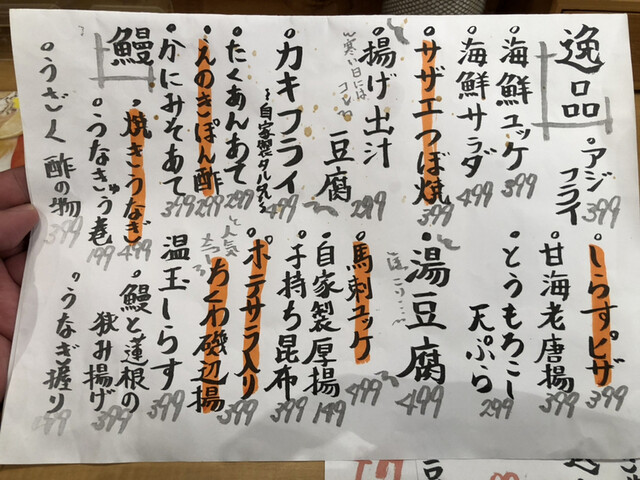 逸品
・アジフライ 399
・しらすピザ 399
・海鮮ユッケ 399
甘海老唐揚 399
・海鮮サラダ 499
・とうもろこし天ぷら 299
・サザエつぼ焼 399
・揚げ出汁豆腐 299
〜寒い日には
コレ〜
・湯豆腐 499
・カキフライ 499
〜自家製タルタル〜
・馬刺ユッケ 499
・自家製厚揚 149
・たくあんあて 299
・子持ち昆布 399
・えのきぽん酢 299
・ポテサラ入りちくわ磯辺揚 399
人気
・かにみそあて 399
温玉しらす 399
鰻
・焼きうなぎ 499
・鰻と蓮根の狭み揚げ 399
・うなぎゅう巻 199
・うなぎ握り 399
・うざく酢の物 399